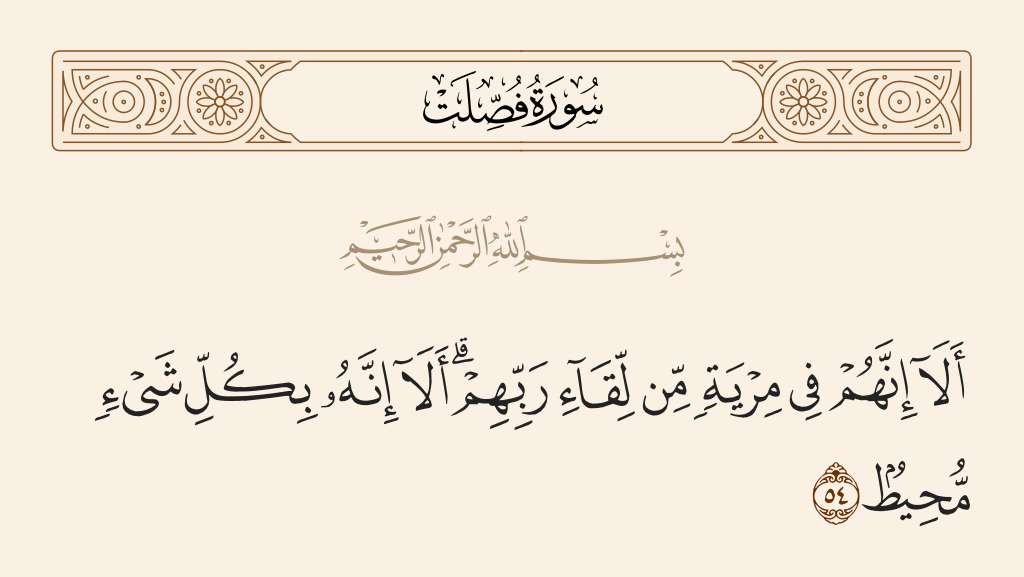 سُورَةُ فُصِّلَتْ
بِسْمِ ٱللَّهِ ٱلرَّحْمَٰنِ ٱلرَّحِيمِ
أَلَآ إِنَّهُمْ فِى مِرْيَةٍ مِّن لِّقَآءِ رَبِّهِمْ ۗ أَلَآ إِنَّهُۥ بِكُلِّ شَىْءٍ
مُّحِيطٌۢ ٥٤